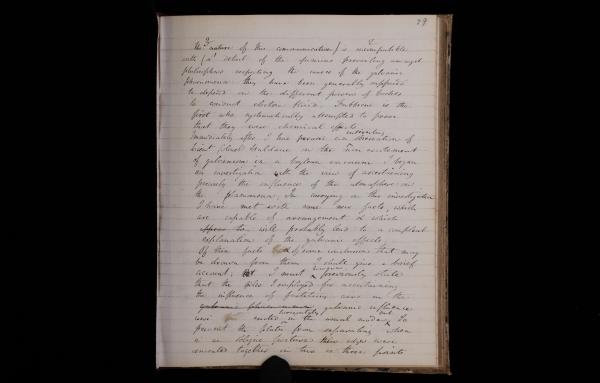 29
the nature of this communication is incompatible
with a detail of the opinions prevailing amongst
philosophers respecting the cause of the galvanic
phenomena. they have been generally supposed
to depend on the different powers of bodies
to conduct electric fluid. Fabbroni is the
first who systematically attempted to prove
that they were chemical effects.
Immediately after I have an interesting observation of
on the
of galvanism in a vacuum I began
an investigation with the view of ascertaining
precisely the influence of the atmosphere on
the phænomena; In carrying on this investigation
I have met with some new facts, which
are capable of arrangement & which
will probably lead to a compleat
explanation of the galvanic effects.
Of these facts & of some conclusions that may
be drawn from them I shall give a brief
account; but I must previously state
that the piles I employed for ascertaining
the influence of in the
galvanic influence
were erected in the usual mode, To
prevent the plates from separating when
their edges were
cemented together in two or three points